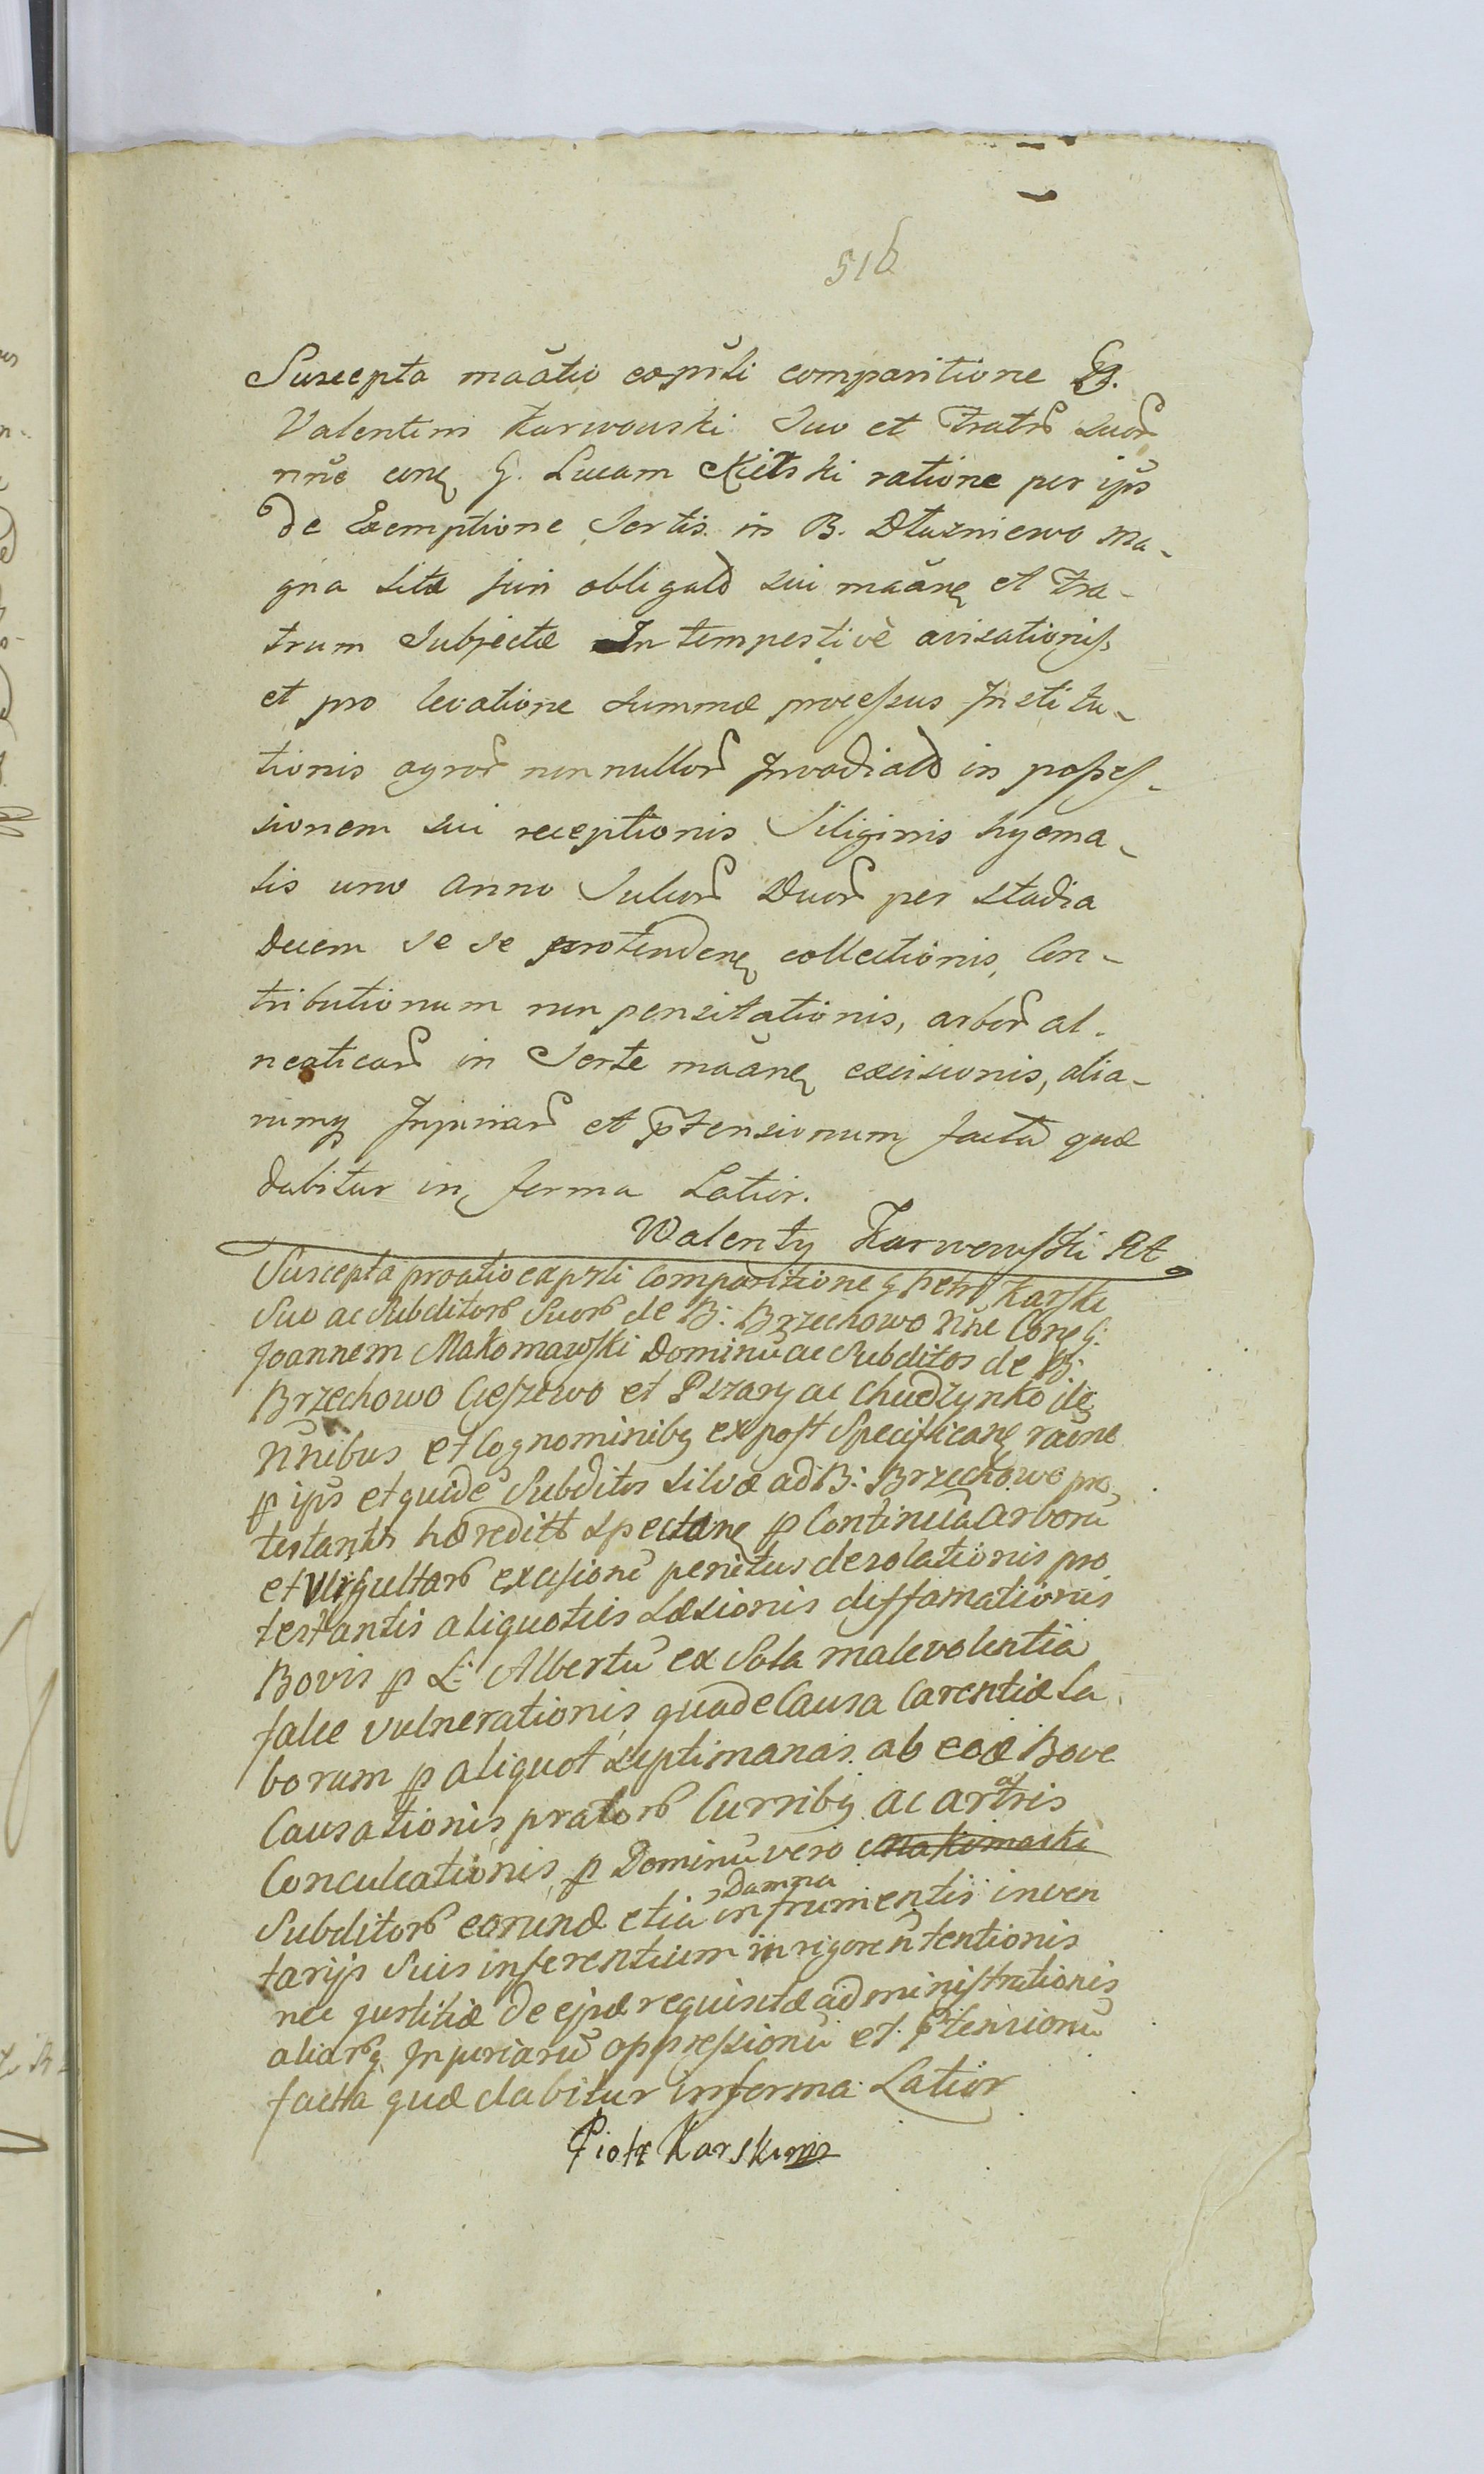 516
Suscepta maãtio ex prŭli comparitione G.
Valentini Karwowski Suo et Fratrũ Suor
nñe conẽ G. Lucam Kiciski ratione per ips̃
de Exemptione Sortis in B. Dłuzniewo Ma-
gna sitæ juri obligatõ sui maãnẽ et Fra-
trum Subjectæ In tempestivè avisationis,
et pro levatione summæ processus Institu-
tionis agror non nullor Invadiatõ in posses-
sionem sui receptionis Siliginis hyema-
lis uno Anno Sulcor Duor per stadia
Decem se se protendenẽ collectionis, Con-
tributionum non pensitationis, arbor al-
neaticar in Sorte maãnẽ excisionis, alia-
rumq Injuriar et p̃tensionum facta quæ
dabitur in forma Latior.
Walenty Karwowski Rt
Suscepta proatio ex prŭli Comparitione G Petri Karski
Suo ac Subditorũ Suorũ de B: Brzechowo Nñe Conẽ G:
Joannem Makomawski Dominũ ac Subditos de B:
Brzechowo Cieszewo et Pszary ac Chudzynko de
Nñibus et Cognominibq ex post Specificanẽ raõne
p ips̃ et quidẽ Subditos silvæ ad B: Brzechowo pro
testantis hæreditõ spectanẽ p Continuã arborũ
et Virgultarũ excisionẽ penitus desolationis pro
testantis aliquoties Læsionis diffamationis
Bovis p L: Albertũ ex Sola malevolentia
falce vulnerationis quade Causa Carentiæ La
borum p aliquot septimanas ab eod Bove
Causationis pratorũ Curribq ac aratris
Conculcationis p Dominũ vero Makomaski
Subditorũ eorund etiã Damna in frumentis inven
tarijs Suis inferentium in rigore ñ tentionis
nec justitiæ de ejsd requisitæ administrationis
aliarũq Injuriarũ oppressionũ et p̃tensionũ
facta quæ dabitur in forma Latior
Piotr Karski mp